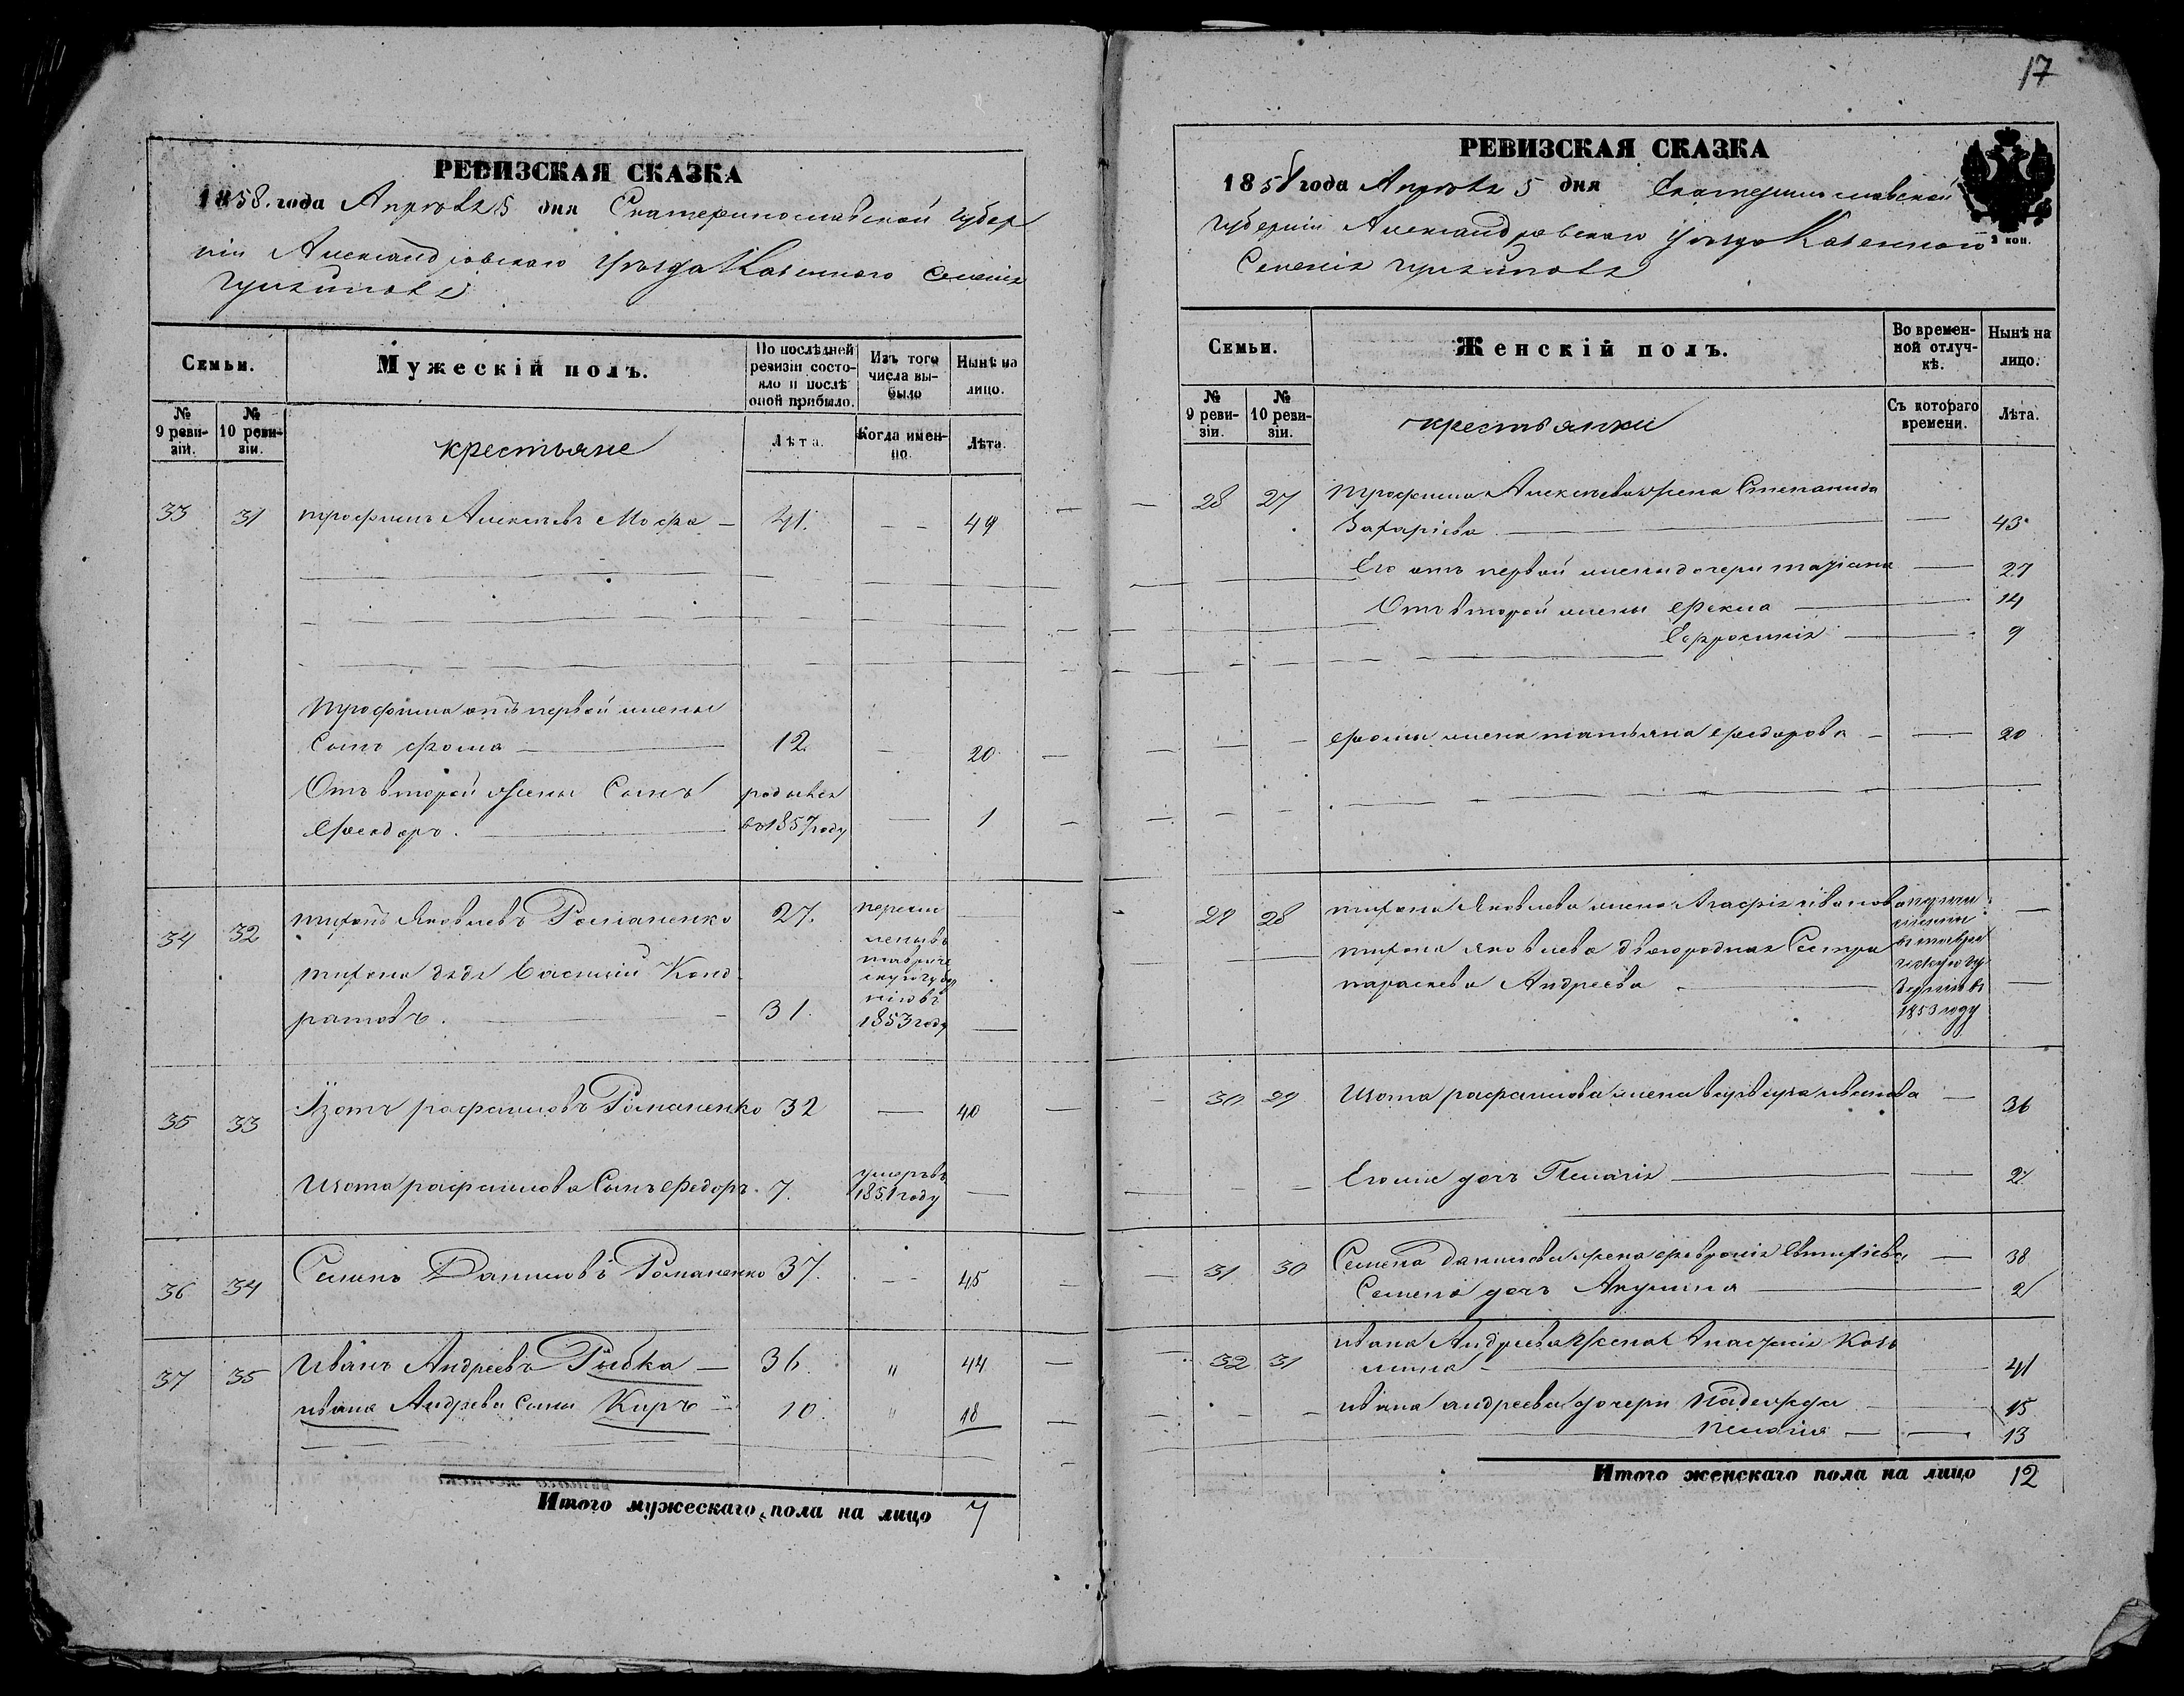 РЕВИЗСКАЯ СКАЗКА
1858. года Апрѣля 5 дня Екатеринославской Губер
ніи Александровскаго уѣзда Казеннаго Селенія
Семьи.
Мужескій полъ.
По послѣдней ревизіи состояло и послѣ оной прибыло.
Изъ того числа выбыло
Нынѣ на лицо.
№ 9 ревизіи.
№ 10 ревизіи.
крестьяне
Лѣта.
Когда именно.
Лѣта.
33 31 трофимъ Алексѣевъ Мосфа — 41. — — 49
трофима отъ первой жены
Сынъ фома — 12 — 20
Отъ второй жены Сынъ родился
Феодоръ. — въ 1857 году — 1
34 32 тихонъ Яковлевъ Романенко 27. пересе
ленъ въ
тихона дядя Василій Конд тавриче
скую губер
ратовъ. — 31. нію въ
1853 году —
35 33 Изотъ рафаиловъ Романенко 32 — 40
Изота рафаилова Сынъ федоръ 7. умеръ въ
1851 году —
36 34 Семенъ Даниловъ Романенко 37. — — 45
37 35 Иванъ Андреевъ Рыбка — 36. " 44
ивана Андреева сынъ Киръ 10. " 18
Итого мужескаго пола на лицо 7
17
РЕВИЗСКАЯ СКАЗКА
1858 года Апрѣля 5 дня Екатеринославской
Губерніи Александровскаго уѣзда Казеннаго
Селенія
2 коп.
Семьи.
Женскій полъ.
Во временной отлучкѣ.
Нынѣ на лицо.
№ 9 ревизіи.
№ 10 ревизіи.
крестьянки
Съ котораго времени.
Лѣта.
28 27 трофима Алексѣева жена Степанида
Захаріева — 43
Его отъ первой жены дочери — 27
Отъ второй жены Фекла — 14
Ефросинія — 9
фомы жена татьяна феодорова — 20
29 28 тихона Яковлева жена Агафія иванова —
тихона яковлева двоюродная Сестра
параскева Андреева —
въ таври
ческую гу
бернію въ
1853 году
30 29 Изота рафаилова жена варвара иванова — 36
Его же дочь Пелагія — 2
31 30 Семена данилова жена февронія Евтихіева — 38
Семена дочь Акулина — 2
32 31 ивана Андреева жена Анастасія Козь
мина — 41
ивана андреева дочери Надежда — 15
пелагія — 13
Итого женскаго пола на лицо 12